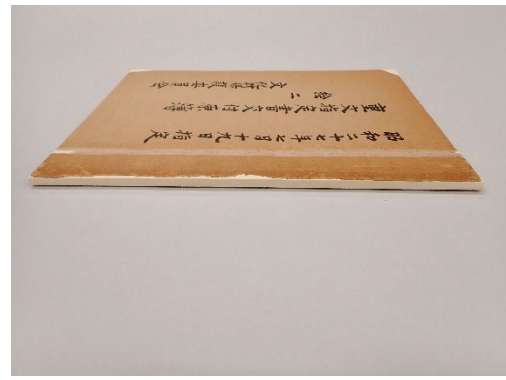 昭和二十七年七月十九日指定
重文指定書交付原簿
絵二
文化財保護委員会